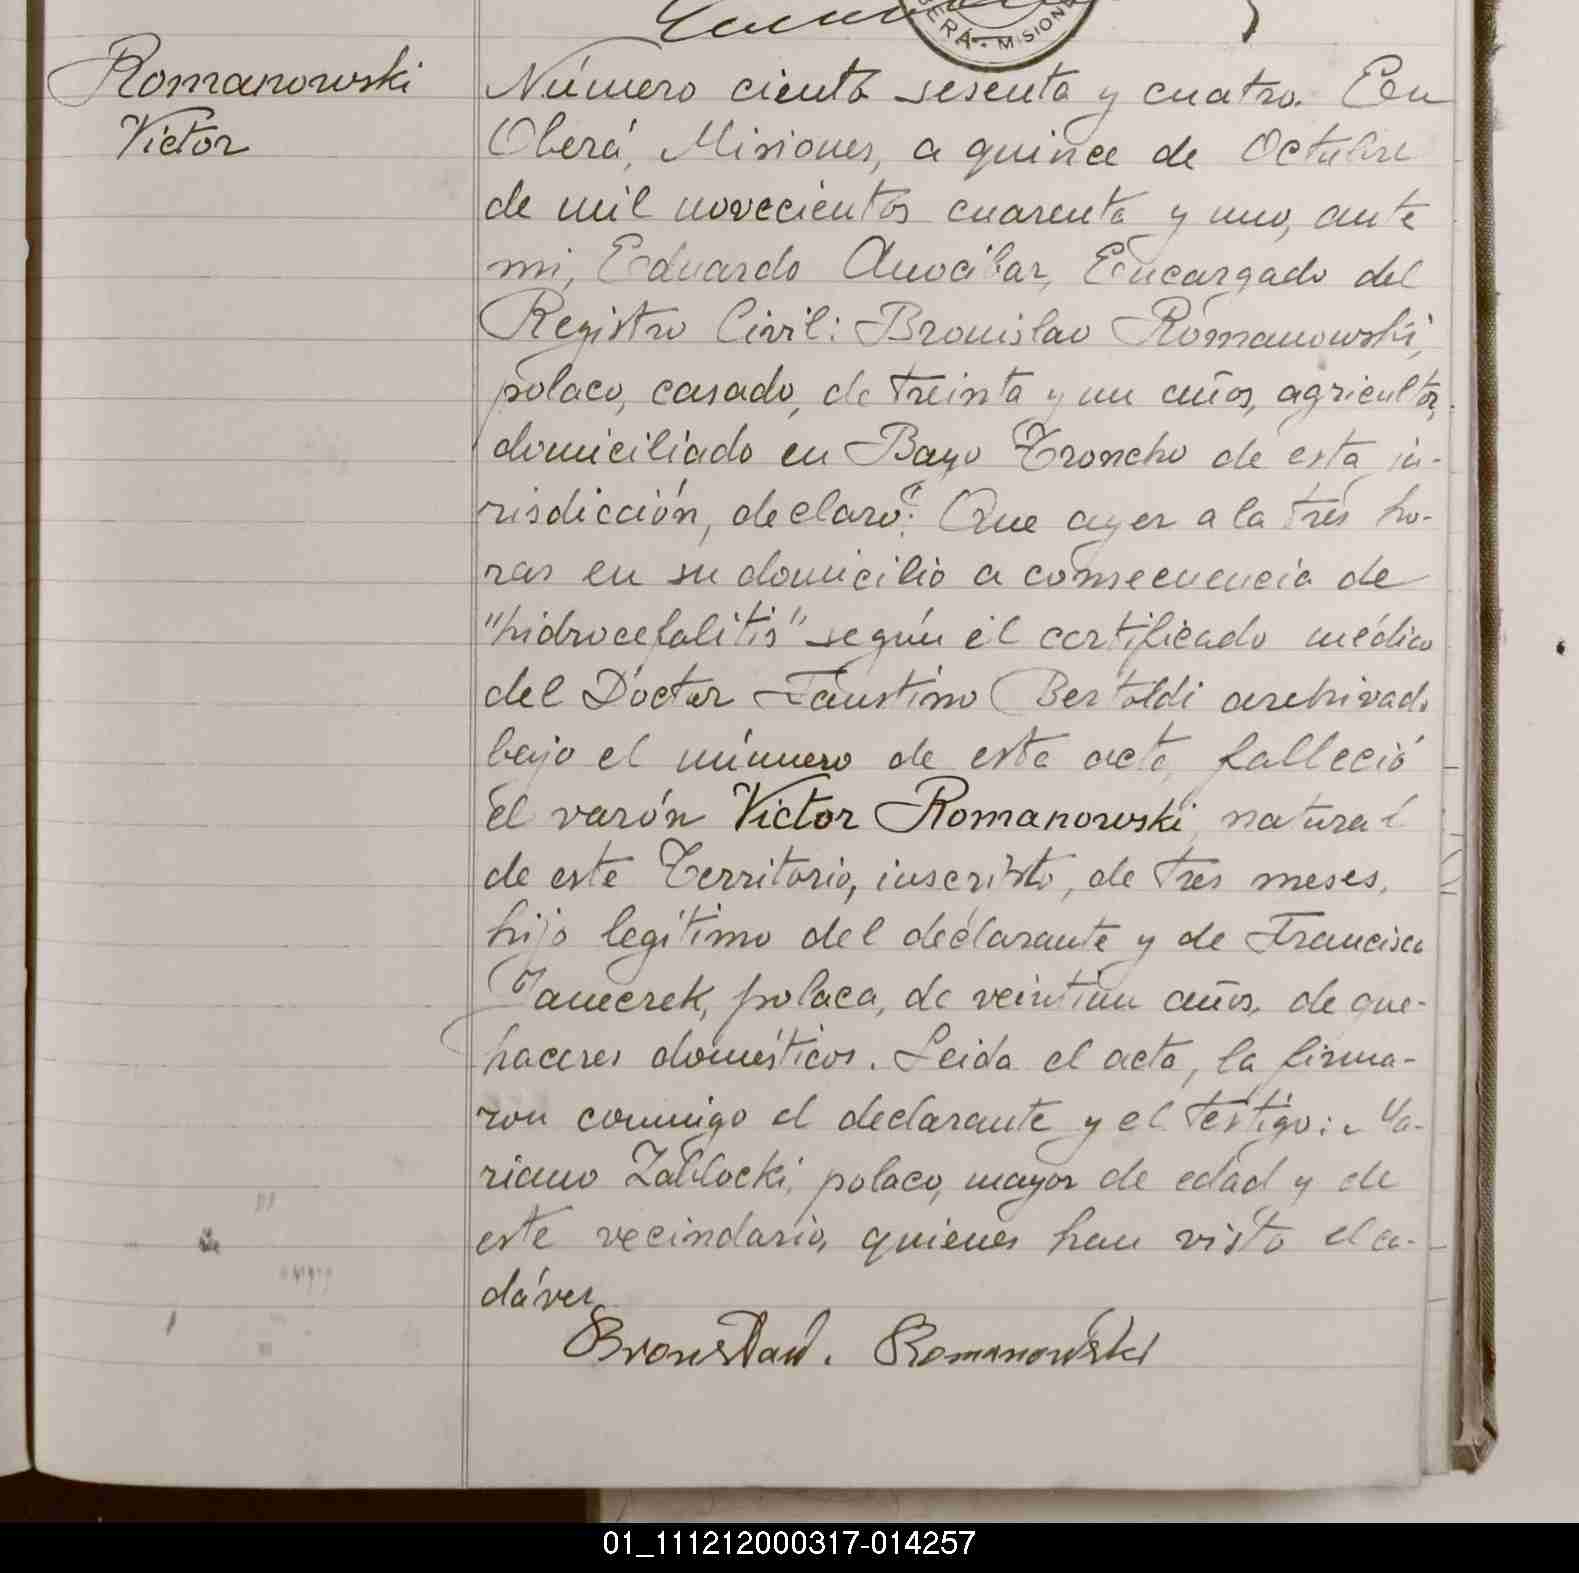 BERÁ - MISION
Romanowski
Victor
Número ciento sesenta y cuatro. En
Oberá, Misiones, a quince de Octubre
de mil novecientos cuarenta y uno, ante
mi, Eduardo Anocibar, Encargado del
Registro Civil: Bronislao Romanowski,
polaco, casado, de treinta y un años, agricultor,
domiciliado en Bayo Troncho de esta ju-
risdicción, declaró: Que ayer a la tres ho-
ras en su domicilio a consecuencia de
"hidrocefalitis" según el certificado médico
del Doctor Faustino Bertoldi archivado
bajo el número de esta acta, falleció
el varón Victor Romanowski, natural
de este Territorio, inscripto, de tres meses,
hijo legítimo del declarante y de Francisca
Janecrek, polaca, de veintiun años, de que-
haceres domésticos. Leida el acta, la firma-
ron conmigo el declarante y el testigo: Ma-
riano Zablocki, polaco, mayor de edad y de
este vecindario, quienes han visto el ca-
dáver.
Bronisław. Romanowski
01_111212000317-014257